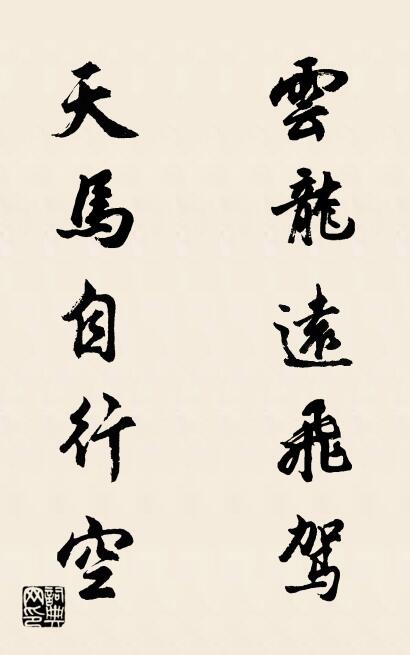 雲龍遠飛駕
天馬自行空
詞典网